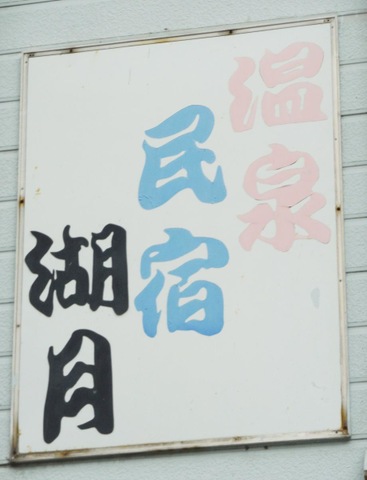 温泉
民宿
湖月